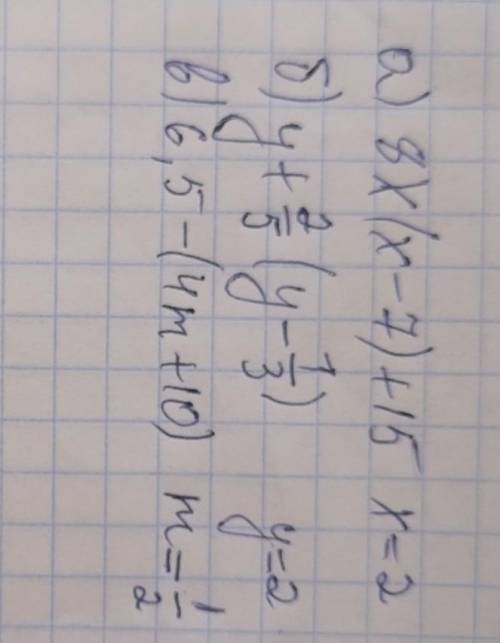 а) 8x(x-7)+15 x=2
б) y+2/5(y-1/3) y=2
в) 6,5-(4m+10) m=1/2